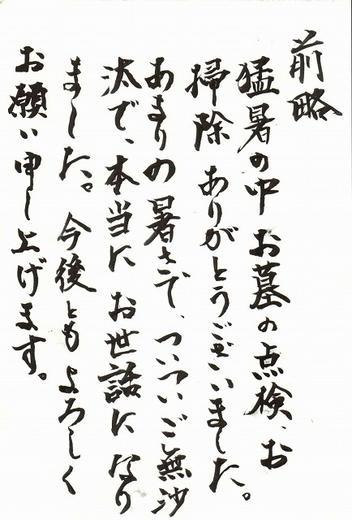 前略
猛暑の中 お墓の点検、お
掃除 ありがとうございました。
あまりの暑さで、ついついご無沙
汰で、本当に お世話になり
ました。今後ともよろしく
お願い申し上げます。